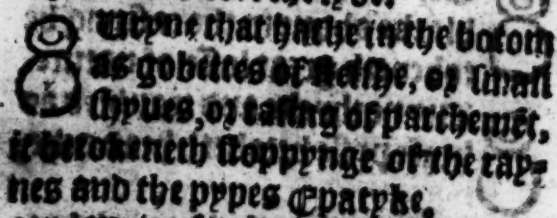 Uryne that hathe in the botom
as gobettes of fleishe, or small
shyues, or rasing of parchemēt,
it betokeneth stoppynge of the ray⸗
nes and the pypes Epatyke.